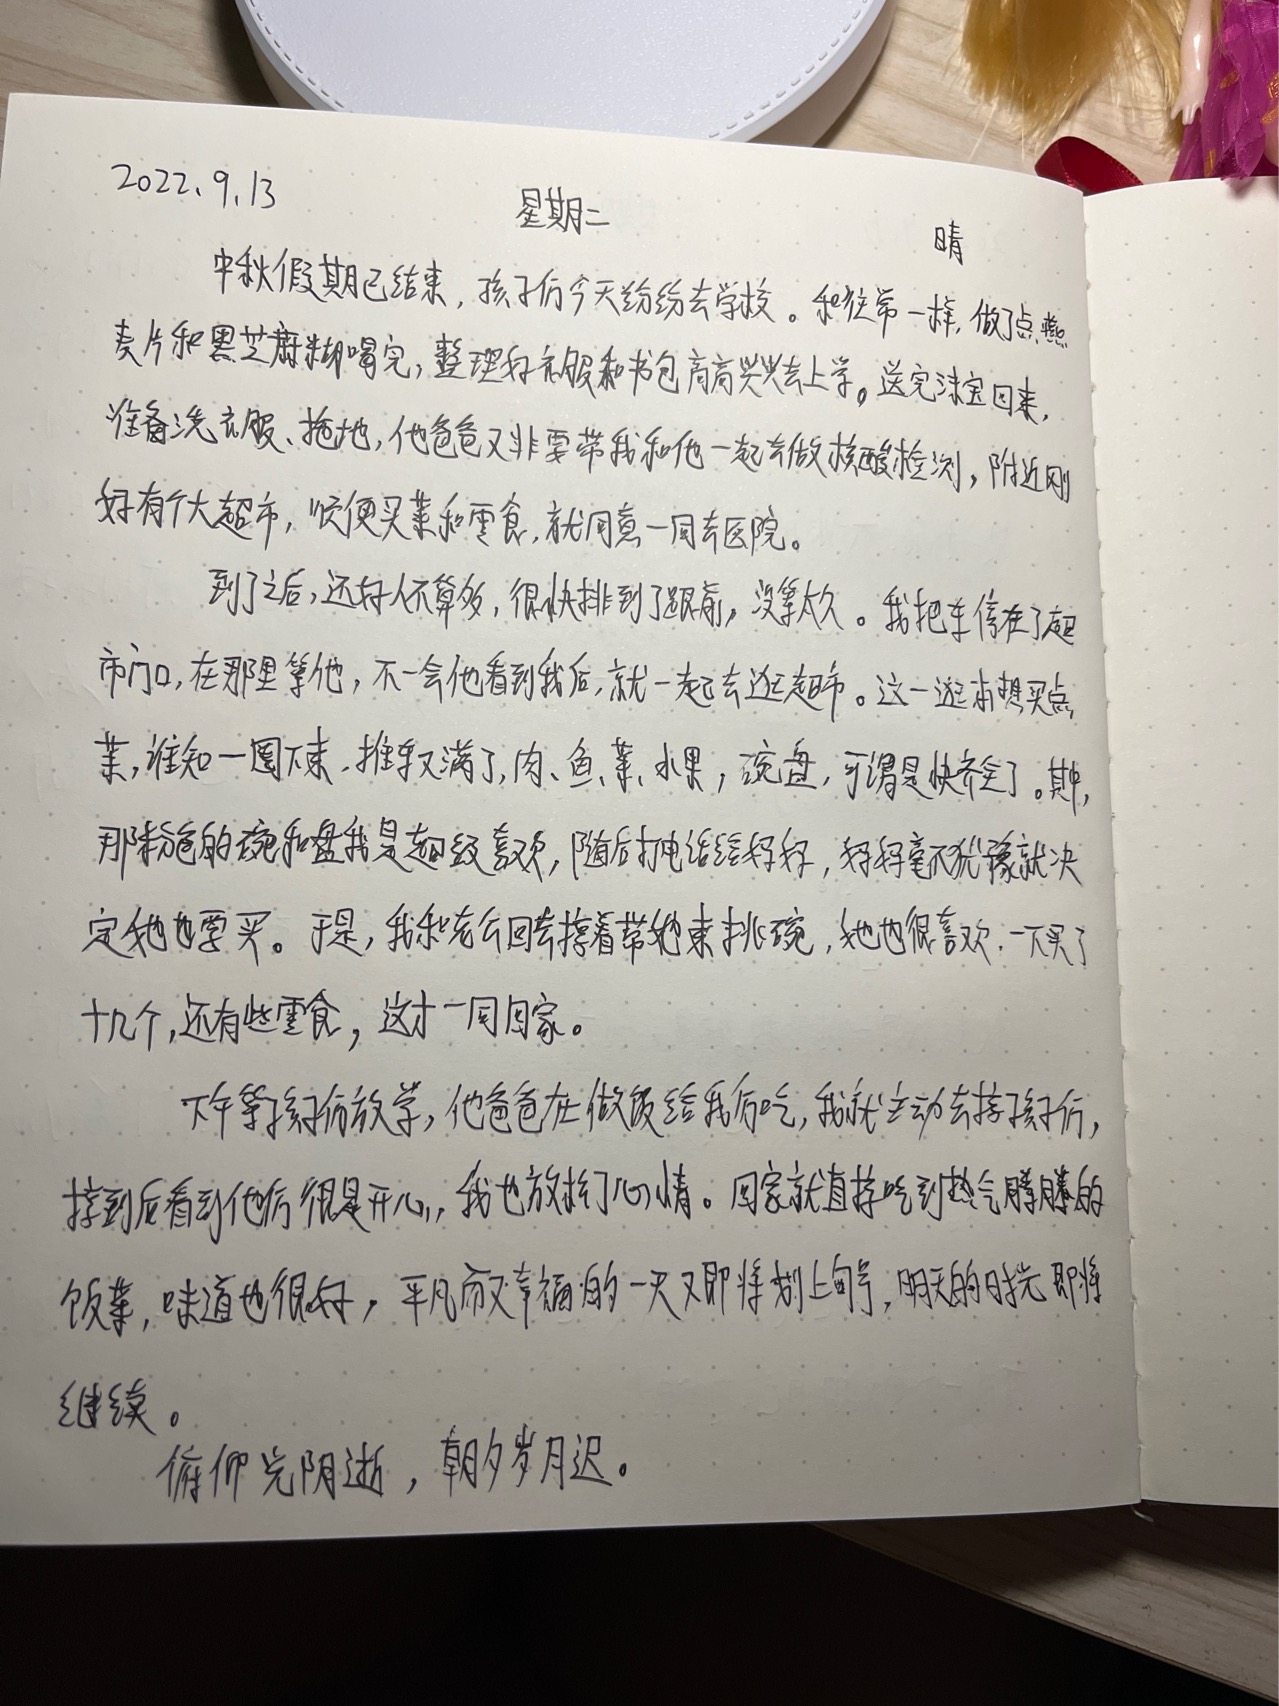 2022.9.13 星期二 晴
中秋假期已结束，孩子们今天纷纷去学校。和往常一样，做了点燕
麦片和黑芝麻糊喝完，整理好衣服和书包高高兴兴去上学。送完沫宝回来，
准备洗衣服、拖地，他爸爸又非要带我和他一起去做核酸检测，附近刚
好有个大超市，顺便买菜和零食，就同意一同去医院。
到了之后，还好人不算多，很快排到了跟前，没等太久。我把车停在了超
市门口，在那里等他，不一会他看到我后，就一起去逛超市。这一逛本想买点
菜，谁知一圈下来，推车又满了，肉、鱼、菜、水果，碗盘，可谓是快齐全了。其中，
那粉色的碗和盘我是超级喜欢，随后打电话给好好，好好毫不犹豫就决
定她也要买。于是，我和老公回去接着带她来挑碗，她也很喜欢，一下买了
十几个，还有些零食，这才一同回家。
下午等孩子们放学，他爸爸在做饭给我们吃，我就主动去接孩子们，
接到后看到他们很是开心，我也放松了心情。回家就直接吃到热气腾腾的
饭菜，味道也很好，平凡而又幸福的一天又即将划上句号，明天的时光即将
继续。
俯仰光阴逝，朝夕岁月迟。